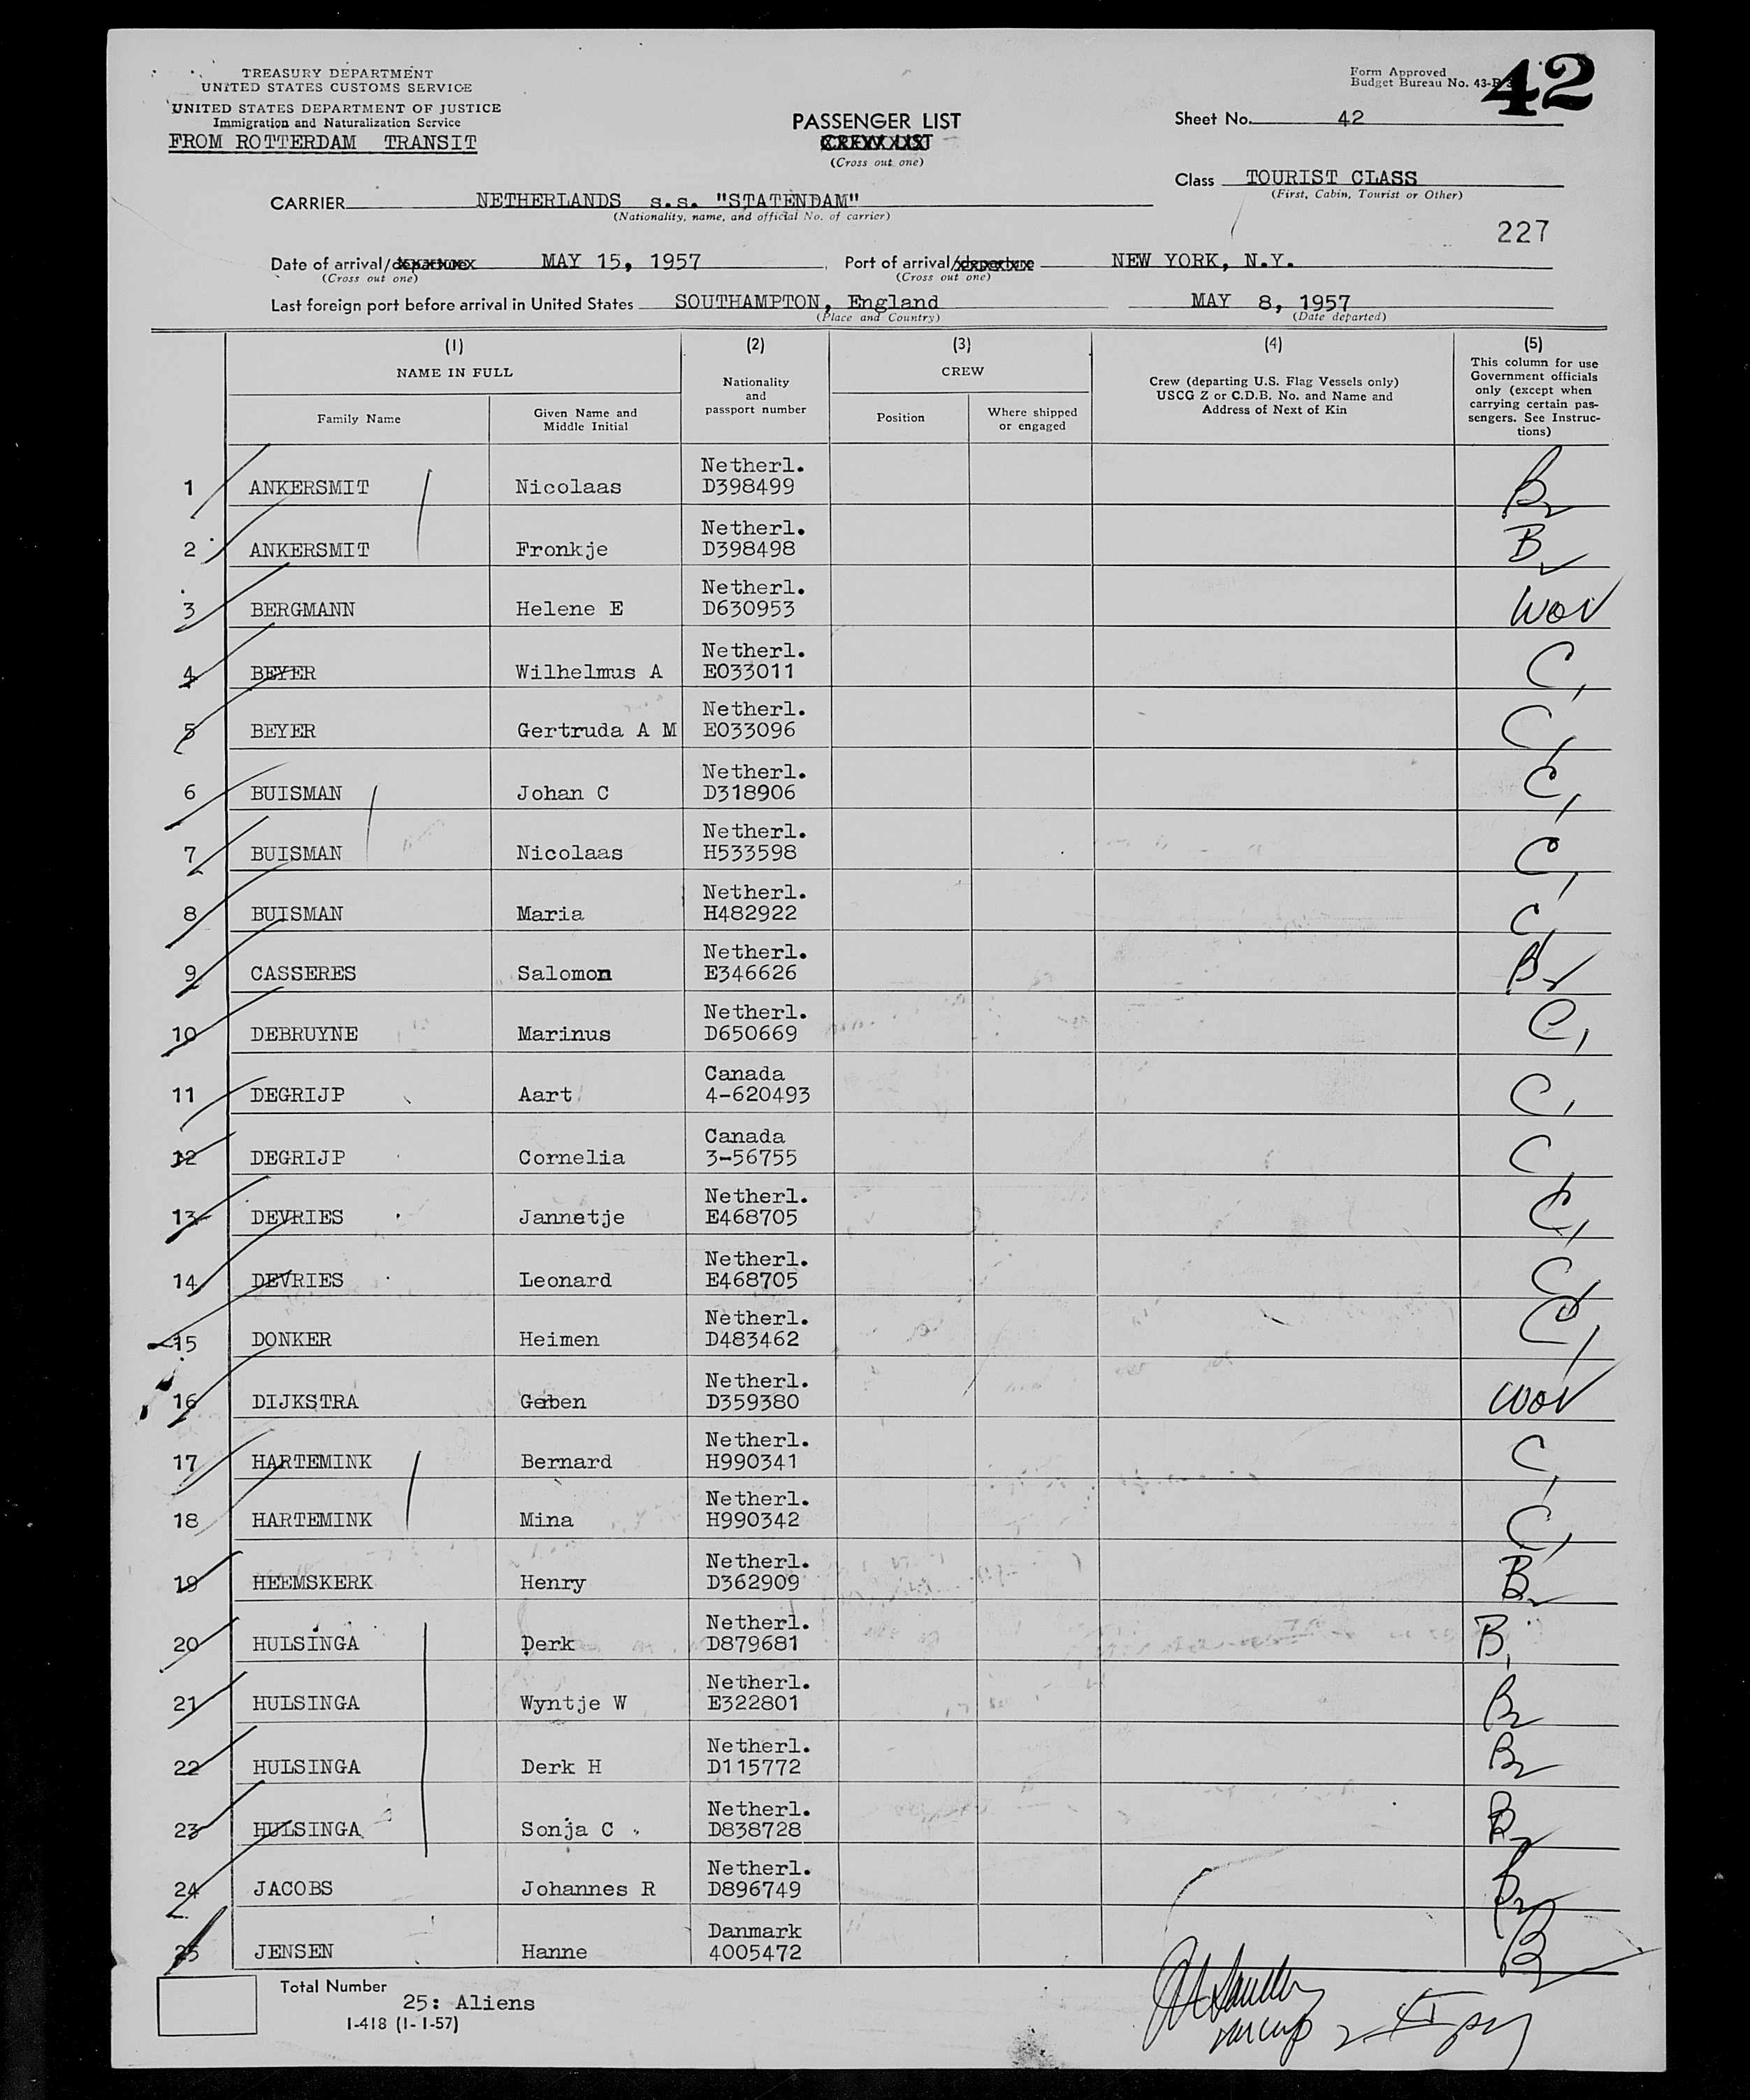 TREASURY DEPARTMENT
UNITED STATES CUSTOMS SERVICE
UNITED STATES DEPARTMENT OF JUSTICE
Immigration and Naturalization Service
FROM ROTTERDAM TRANSIT
PASSENGER LIST
CREW LIST
(Cross out one)
Form Approved
Budget Bureau No. 43-R
42
Sheet No. 42
Class TOURIST CLASS
(First, Cabin, Tourist or Other)
CARRIER NETHERLANDS s.s. "STATENDAM"
(Nationality, name, and official No. of carrier)
227
Date of arrival/departure MAY 15, 1957 Port of arrival/departure NEW YORK, N.Y.
(Cross out one) (Cross out one)
Last foreign port before arrival in United States SOUTHAMPTON, England MAY 8, 1957
(Place and Country) (Date departed)
(1) (2) (3) (4) (5)
NAME IN FULL
Family Name
Given Name and
Middle Initial
Nationality
and
passport number
CREW
Position
Where shipped
or engaged
Crew (departing U.S. Flag Vessels only)
USCG Z or C.D.B. No. and Name and
Address of Next of Kin
This column for use
Government officials
only (except when
carrying certain pas-
sengers. See Instruc-
tions)
Netherl.
1 ANKERSMIT Nicolaas D398499 B
Netherl.
2 ANKERSMIT Fronkje D398498 B
Netherl.
3 BERGMANN Helene E D630953
Netherl.
4 BEYER Wilhelmus A E033011 C
Netherl.
5 BEYER Gertruda A M E033096 C
Netherl.
6 BUISMAN Johan C D318906 C
Netherl.
7 BUISMAN Nicolaas H533598 C
Netherl.
8 BUISMAN Maria H482922 C
Netherl.
9 CASSERES Salomon E346626 B
Netherl.
10 DEBRUYNE Marinus D650669 C
Canada
11 DEGRIJP Aart 4-620493 C
Canada
12 DEGRIJP Cornelia 3-56755 C
Netherl.
13 DEVRIES Jannetje E468705 C
Netherl.
14 DEVRIES Leonard E468705 C
Netherl.
15 DONKER Heimen D483462 C
Netherl.
16 DIJKSTRA D359380
Netherl.
17 HARTEMINK Bernard H990341 C
Netherl.
18 HARTEMINK Mina H990342 C
Netherl.
19 HEEMSKERK Henry D362909 B
Netherl.
20 HULSINGA Derk D879681 B
Netherl.
21 HULSINGA Wyntje W E322801 B
Netherl.
22 HULSINGA Derk H D115772 B
Netherl.
23 HULSINGA Sonja C D838728 B
Netherl.
24 JACOBS Johannes R D896749 B
Danmark
25 JENSEN Hanne 4005472 B
Total Number
25: Aliens
I-418 (1-1-57)